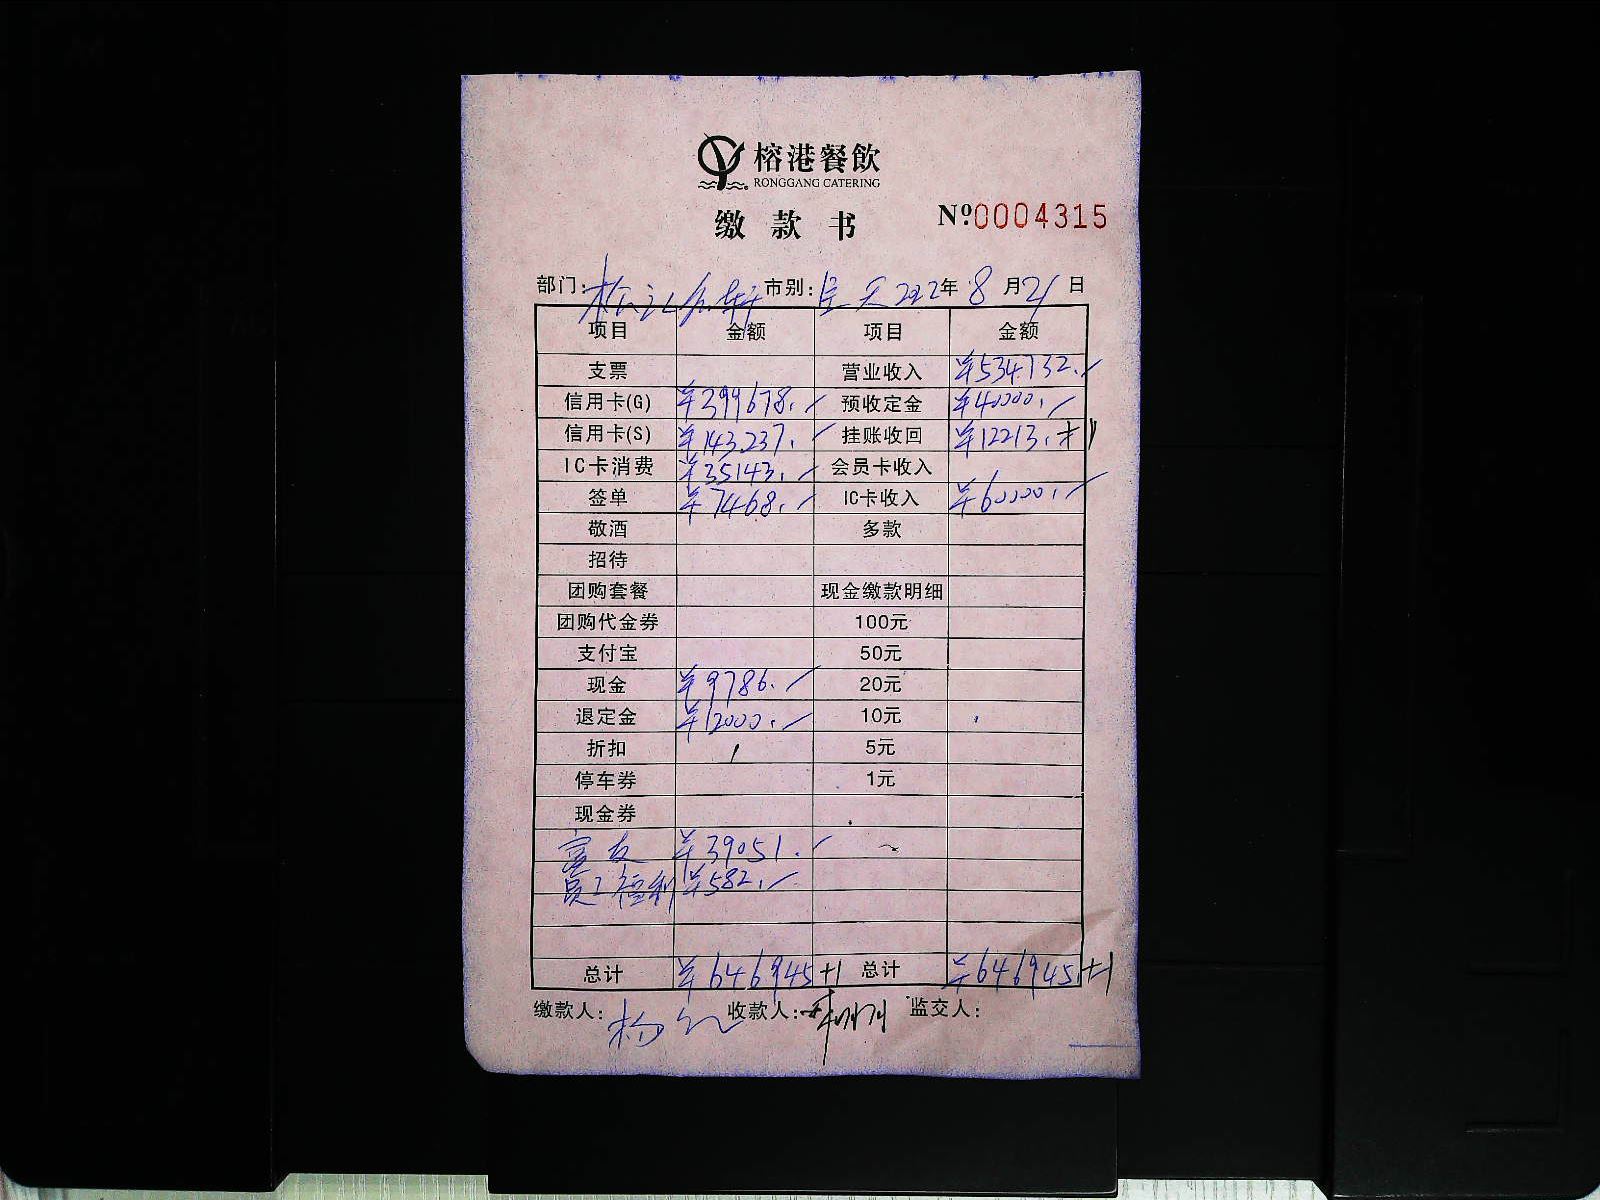 榕港餐飲
RONGGANG CATERING
缴款书 Nº:0004315
部门: 市别: 全天 2022年 8月21日
项目 金额 项目 金额
支票 营业收入 ¥534732.
信用卡(G) ¥399678. 预收定金 ¥40000.
信用卡(S) ¥143237. 挂账收回 ¥12213.
IC卡消费 ¥35143. 会员卡收入
签单 ¥7468. IC卡收入 ¥60000.
敬酒 多款
招待
团购套餐 现金缴款明细
团购代金券 100元
支付宝 50元
现金 ¥9786. 20元
退定金 ¥12000. 10元
折扣 5元
停车券 1元
现金券
富友 ¥39051.
员工福利 ¥582.
总计 ¥646945 总计 ¥646945
缴款人: 杨 收款人: 监交人: